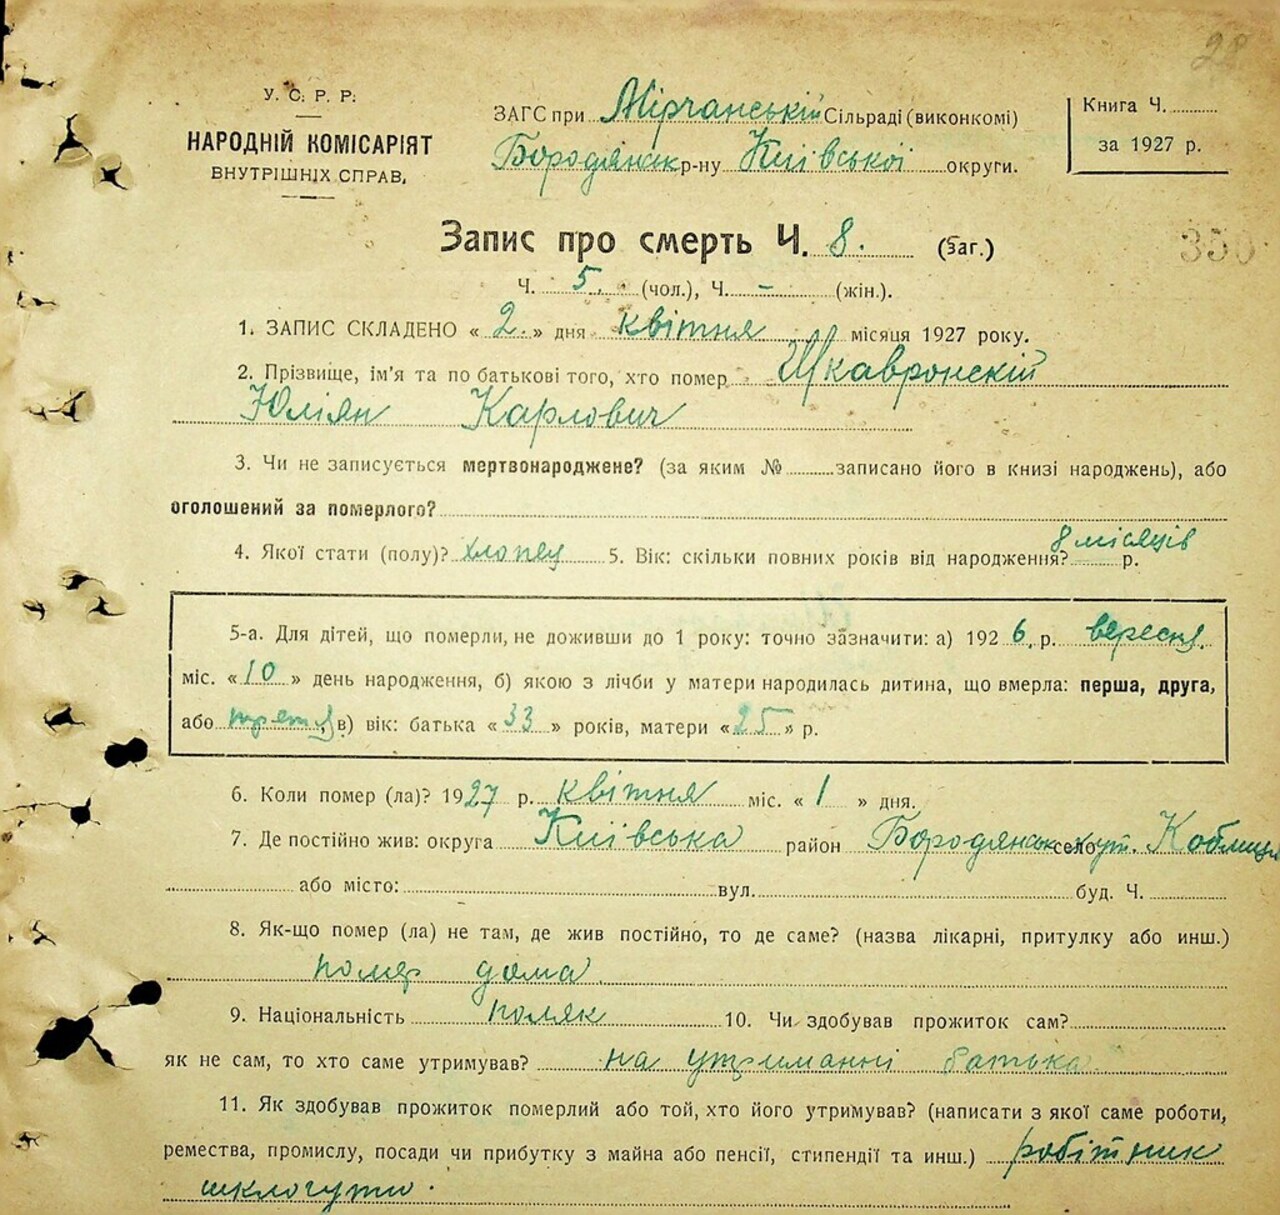 28
У. С. Р. Р.
НАРОДНІЙ КОМІСАРІЯТ
ВНУТРІШНІХ СПРАВ.
ЗАГС при Мірчанській Сільраді (виконкомі)
Бородянськ р-ну Київської округи.
Книга Ч.
за 1927 р.
Запис про смерть Ч. 8. (заг.)
350
Ч. 5. (чол.), Ч. – (жін.).
1. ЗАПИС СКЛАДЕНО « 2. » дня квітня місяця 1927 року.
2. Прізвище, ім'я та по батькові того, хто помер Шкавронскій
Юліян Карлович
3. Чи не записується мертвонароджене? (за яким № записано його в книзі народжень), або
оголошений за померлого?
4. Якої стати (полу)? хлопец 5. Вік: скільки повних років від народження? 8 місяців р.
5-а. Для дітей, що померли, не доживши до 1 року: точно зазначити: а) 1926 р. вересня
міс. « 10 » день народження, б) якою з лічби у матери народилась дитина, що вмерла: перша, друга,
або третя, в) вік: батька « 33 » років, матери « 25 » р.
6. Коли помер (ла)? 1927 р. квітня міс. « 1 » дня.
7. Де постійно жив: округа Київська район Бородянськ село хут. Коблиця
або місто: вул. буд. Ч.
8. Як-що помер (ла) не там, де жив постійно, то де саме? (назва лікарні, притулку або инш.)
помер дома.
9. Національність поляк 10. Чи здобував прожиток сам?
як не сам, то хто саме утримував? на утриманні батька.
11. Як здобував прожиток померлий або той, хто його утримував? (написати з якої саме роботи,
ремества, промислу, посади чи прибутку з майна або пенсії, стипендії та инш.) робітник
шклогути.